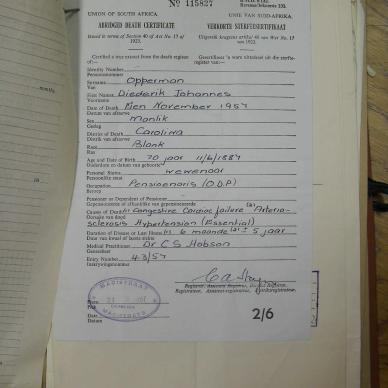 No 115827
UNION OF SOUTH AFRICA. UNIE VAN SUID-AFRIKA.
ABRIDGED DEATH CERTIFICATE VERKORTE STERFTESERTIFIKAAT
Issued in terms of Section 40 of Act No. 17 of 1923. Uitgereik kragtens artikel 40 van Wet No. 17 van 1923.
Certified a true extract from the death register of:
Identity Number
Persoonsnommer
Surname Opperman
Van
First Names Diederik Johannes
Voorname
Date of Death November 1957
Datum van afsterwe
Sex Manlik
Geslag
District of Death Carolina
Distrik van afsterwe
Race Blank
Ras
Age and Date of Birth 70 jaar 11/6/1887
Ouderdom en datum van geboorte
Personal Status Wewenaar
Persoonlike staat
Occupation Pensioenaris (O.D.P)
Beroep
Pensioner or Dependent of Pensioner
Gepensioeneerde of afhanklike van gepensioeneerde
Causes of Death Congestive Cardiac failure Arterio-
Oorsake van dood sclerosis Hypertension (Essential)
Duration of Disease or Last Illness 6 maande 5 jaar
Duur van kwaal of laaste siekte
Medical Practitioner Dr C S Hobson
Geneesheer
Entry Number 43/57
Inskrywingsnommer
MAGISTRAAT
CAROLINA
MAGISTRATE
Place
Plek
Date
Datum
Registrar, Assistant-registrar, District Registrar.
Registrateur, Assistent-registrateur, Distriksregistrateur.
2/6